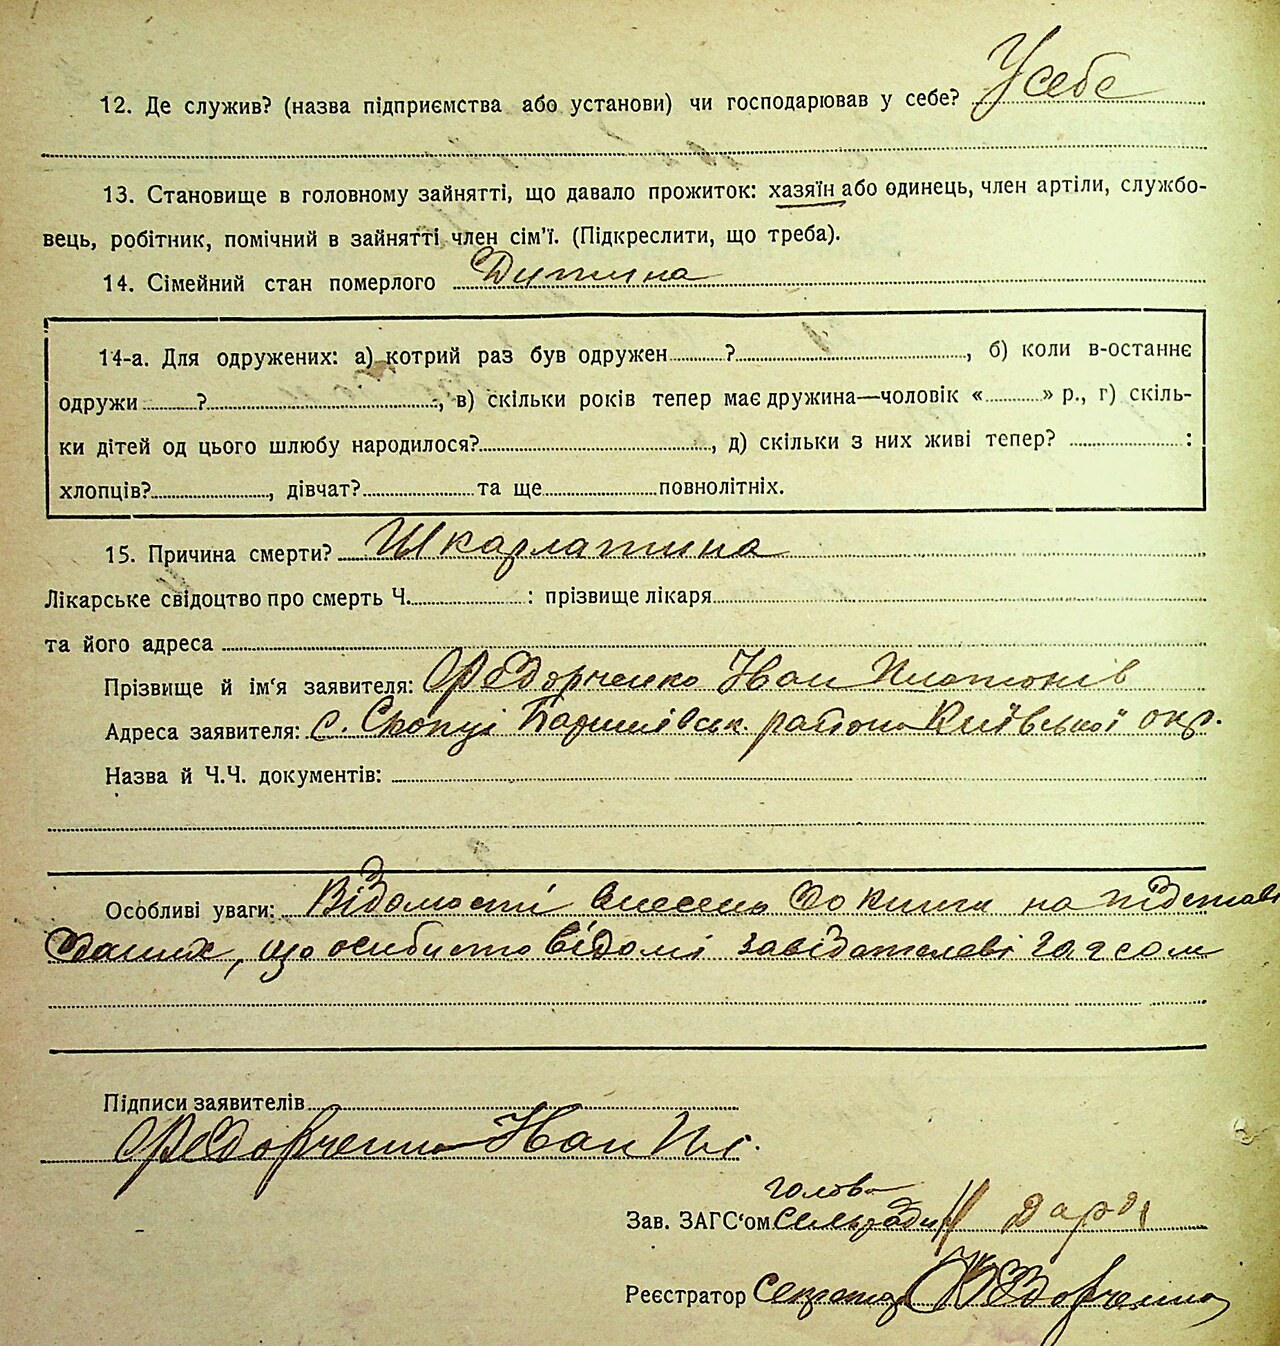 12. Де служив? (назва підприємства або установи) чи господарював у себе? У себе
13. Становище в головному зайнятті, що давало прожиток: хазяїн або одинець, член артіли, службо-
вець, робітник, помічний в зайнятті член сім'ї. (Підкреслити, що треба).
14. Сімейний стан померлого Дитина
14-а. Для одружених: а) котрий раз був одружен ? , б) коли в-останнє
одружи ? , в) скільки років тепер має дружина—чоловік « » р., г) скіль-
ки дітей од цього шлюбу народилося? , д) скільки з них живі тепер? :
хлопців? , дівчат? та ще повнолітніх.
15. Причина смерти? Шкарлатина
Лікарське свідоцтво про смерть Ч. : прізвище лікаря
та його адреса
Прізвище й ім'я заявителя: Федорченко Иван Платонів
Адреса заявителя: с. Скопці Баришівськ. району Київської окр.
Назва й Ч.Ч. документів:
Особливі уваги: Відомості внесено до книги на підставі
даних, що особисто відомі завідателеві загсом
Підписи заявителів
Федорченко Иван Пл.
голова
Зав. ЗАГС'ом сельради
Реєстратор Секретар Федорченко